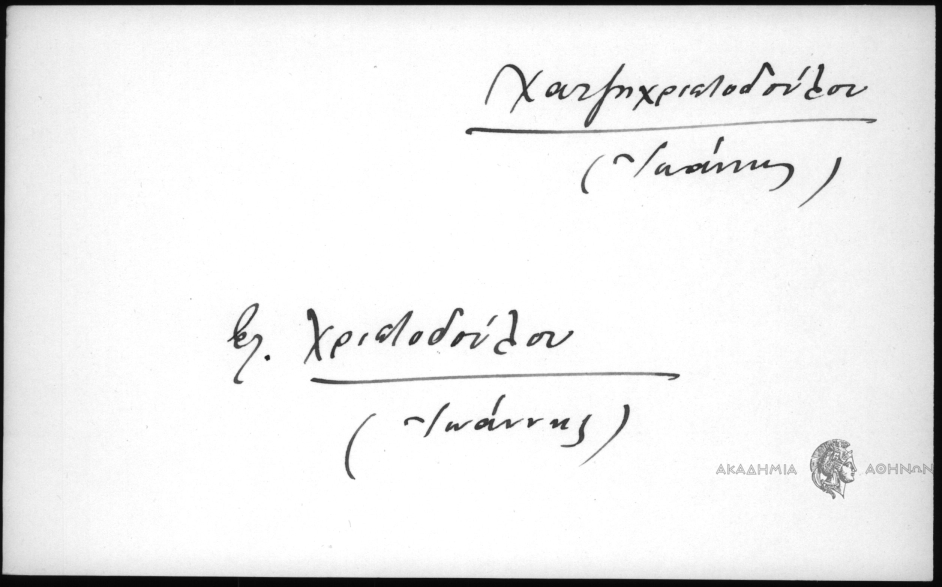 Χατζηχριστοδούλου
(Ἰωάννης)
βλ. Χριστοδούλου
(Ἰωάννης)
ΑΚΑΔΗΜΙΑ ΑΘΗΝΩΝ